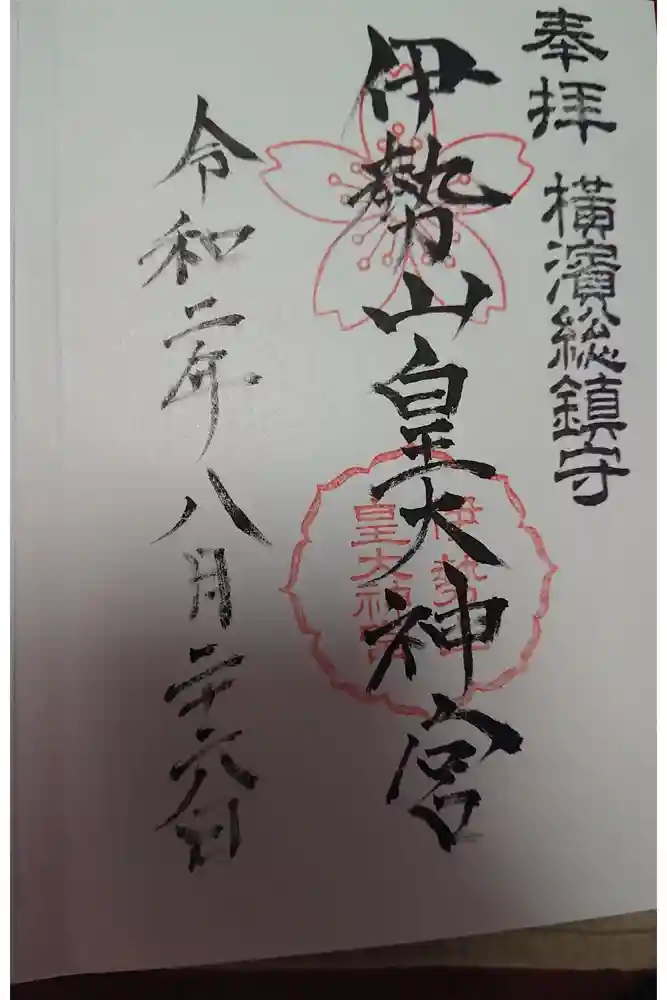 奉拝 横濱総鎮守
伊勢山皇大神宮
伊勢山
皇大神宮
令和二年八月二十六日